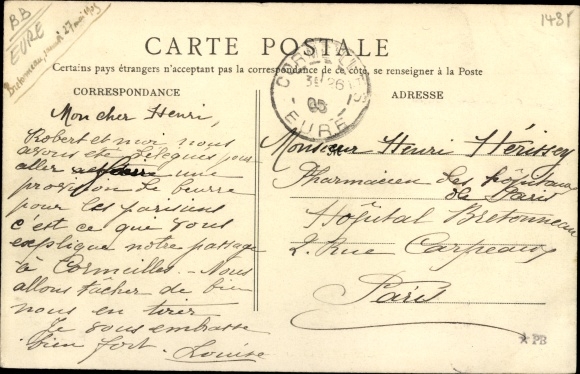 BB
EURE
Bretonneau, samedi 27 mai 1905
1481
CARTE POSTALE
Certains pays étrangers n'acceptant pas la correspondance de ce côté, se renseigner à la Poste
CORRESPONDANCE
Mon cher Henri,
Robert et moi nous
avons été délégués pour
aller une
provision de beurre
pour les parisiens
c'est ce que vous
explique notre passage
à Cormeilles. - Nous
allons tâcher de bien
nous en tirer
Je vous embrasse
bien fort. Louise
CORMEILLES
3E 26
05
EURE
ADRESSE
Monsieur Henri Hérissey
Pharmacien des hôpitaux
de Paris
Hôpital Bretonneau
2. Rue Carpeaux
Paris
PB